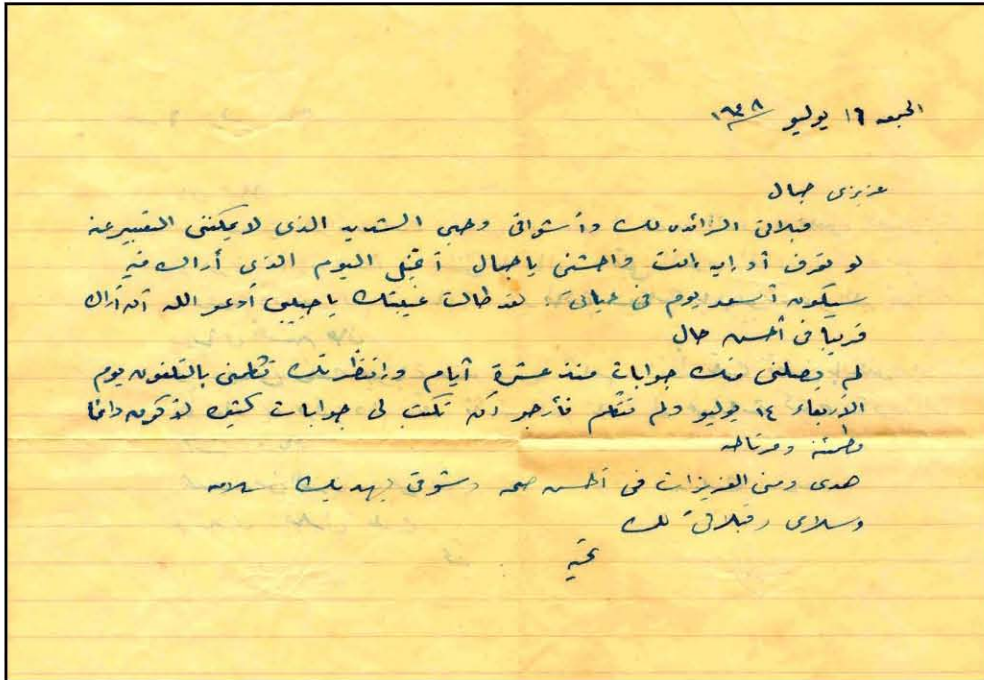 الجمعه ١٦ يوليو ١٩٤٨
عزيزى جمال
قبلاتى الزائده لك وأشواقى وحبى الشديد الذى لا يمكننى التعبير عنه
لو تعرف أد إيه إنت واحشنى ياجمال أتخيل اليوم الذى أراك فيه
سيكون أسعد يوم فى حياتى، لقد طالت غيبتك ياحبيبى أدعو الله أن أراك
قريباً فى أحسن حال
لم يصلنى منك جوابات منذ عشرة أيام وانتظرتك تكلمنى بالتلفون يوم
الأربعاء ١٤ يوليو ولم تتكلم فأرجو أن تكتب لى جوابات كثيره لأكون دائما
مطمئنة ومرتاحه
هدى ومنى العزيزات فى أحسن صحه وشوقى يهديك سلامه
وسلامى وقبلاتى لك
تحية